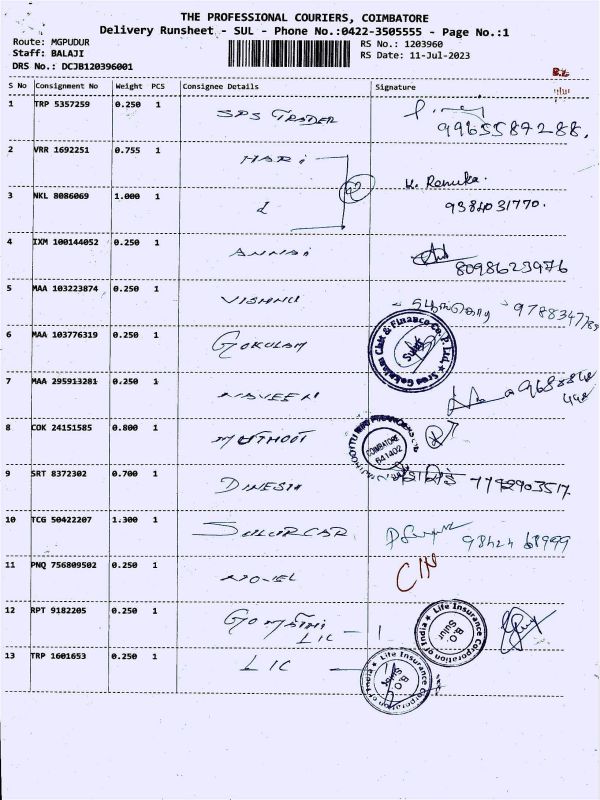 THE PROFESSIONAL COURIERS, COIMBATORE
Delivery Runsheet - SUL - Phone No.:0422-3505555 - Page No.:1
Route: MGPUDUR RS No.: 1203960
Staff: BALAJI RS Date: 11-Jul-2023
DRS No.: DCJB120396001
S No Consignment No Weight PCS Consignee Details Signature
1 TRP 5357259 0.250 1 SPS TRADER
9965587288.
2 VRR 1692251 0.755 1 HARI
K. Renuka.
3 NKL 8086069 1.000 1
9384031770.
4 IXM 100144052 0.250 1 ANNAI
8098623976
5 MAA 103223874 0.250 1 VISHNU
6 MAA 103776319 0.250 1 GOKULAM
Sree Gokulam Chit & Finance Co. P. Ltd.
Sulur
7 MAA 295913281 0.250 1 NAVEEN
8 COK 24151585 0.800 1 MUTHOOT
COIMBATORE
641402
9 SRT 8372302 0.700 1 DINESH
10 TCG 50422207 1.300 1 SULURCAR
98424 68999
11 PNQ 756809502 0.250 1 NOVEL
12 RPT 9182205 0.250 1
LIC
Life Insurance Corporation of India
B.O.
Sulur
13 TRP 1601653 0.250 1 LIC
Life Insurance Corporation of India
B.O.
Sulur